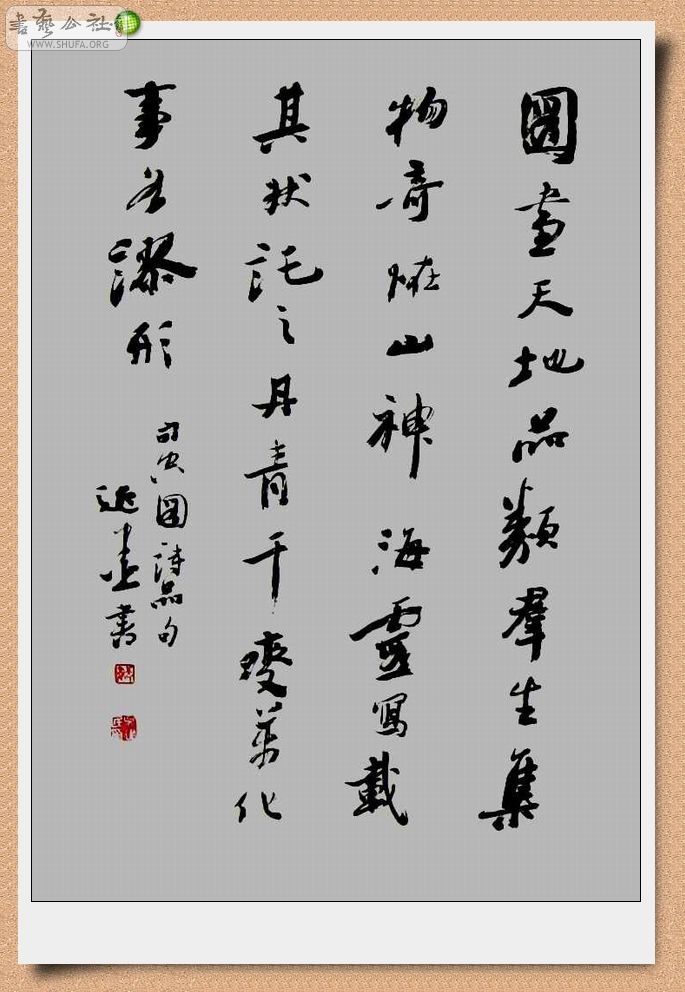 書藝公社
WWW.SHUFA.ORG
圖畫天地品類羣生集
物奇恠山神海靈寫載
其狀託之丹青千變萬化
事各繆形
司空圖詩品句
書